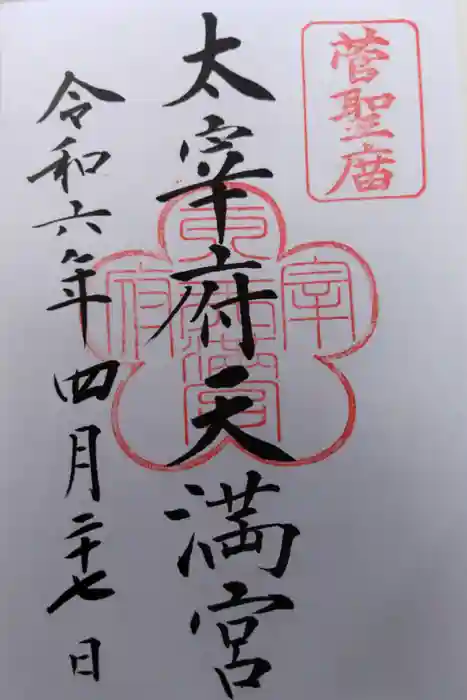 菅聖庿
太宰府天満宮
令和六年四月二十七日